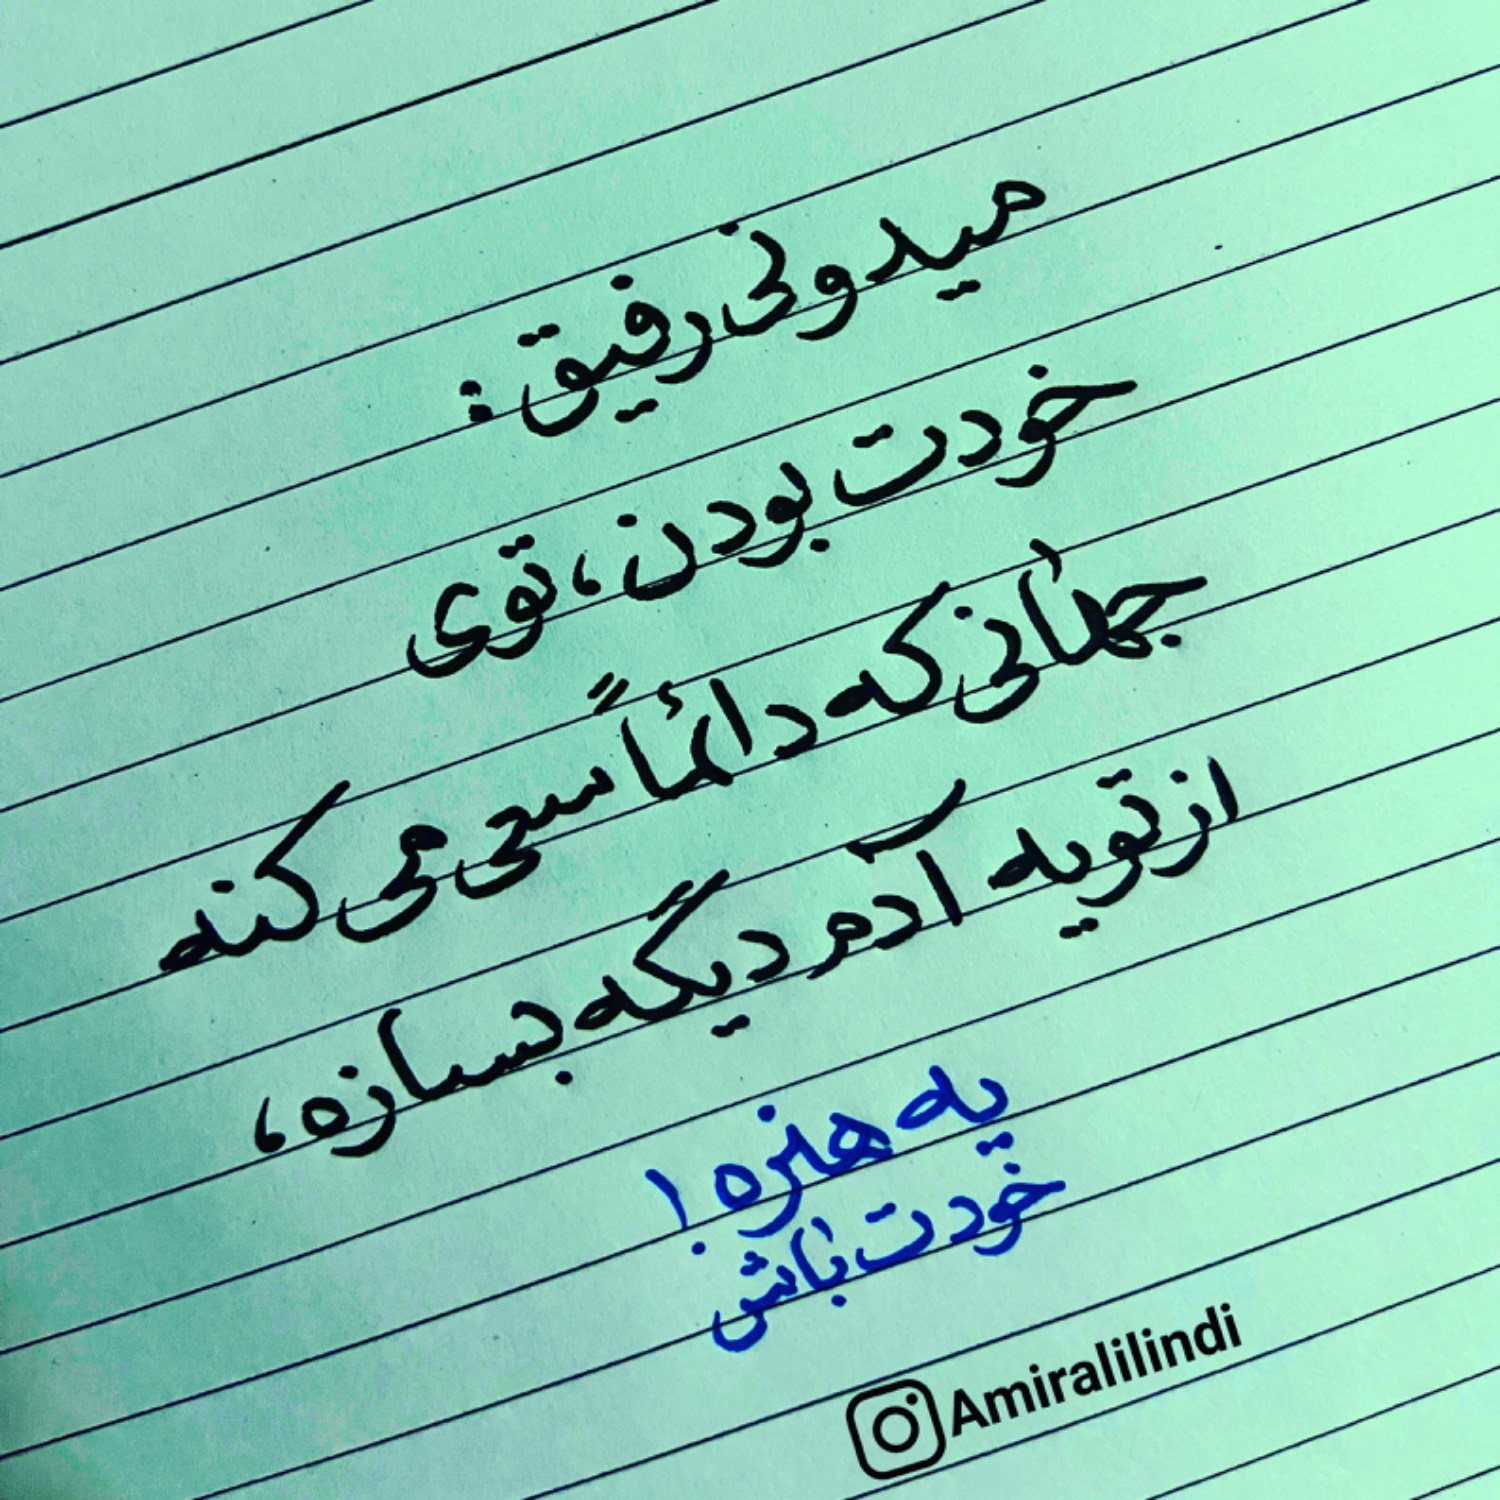 میدونی رفیق :
خودت بودن، توی
جهانی که دائماً سعی می کنه
از تو یه آدم دیگه بسازه،
یه هنره !
خودت باش
Amiralilindi